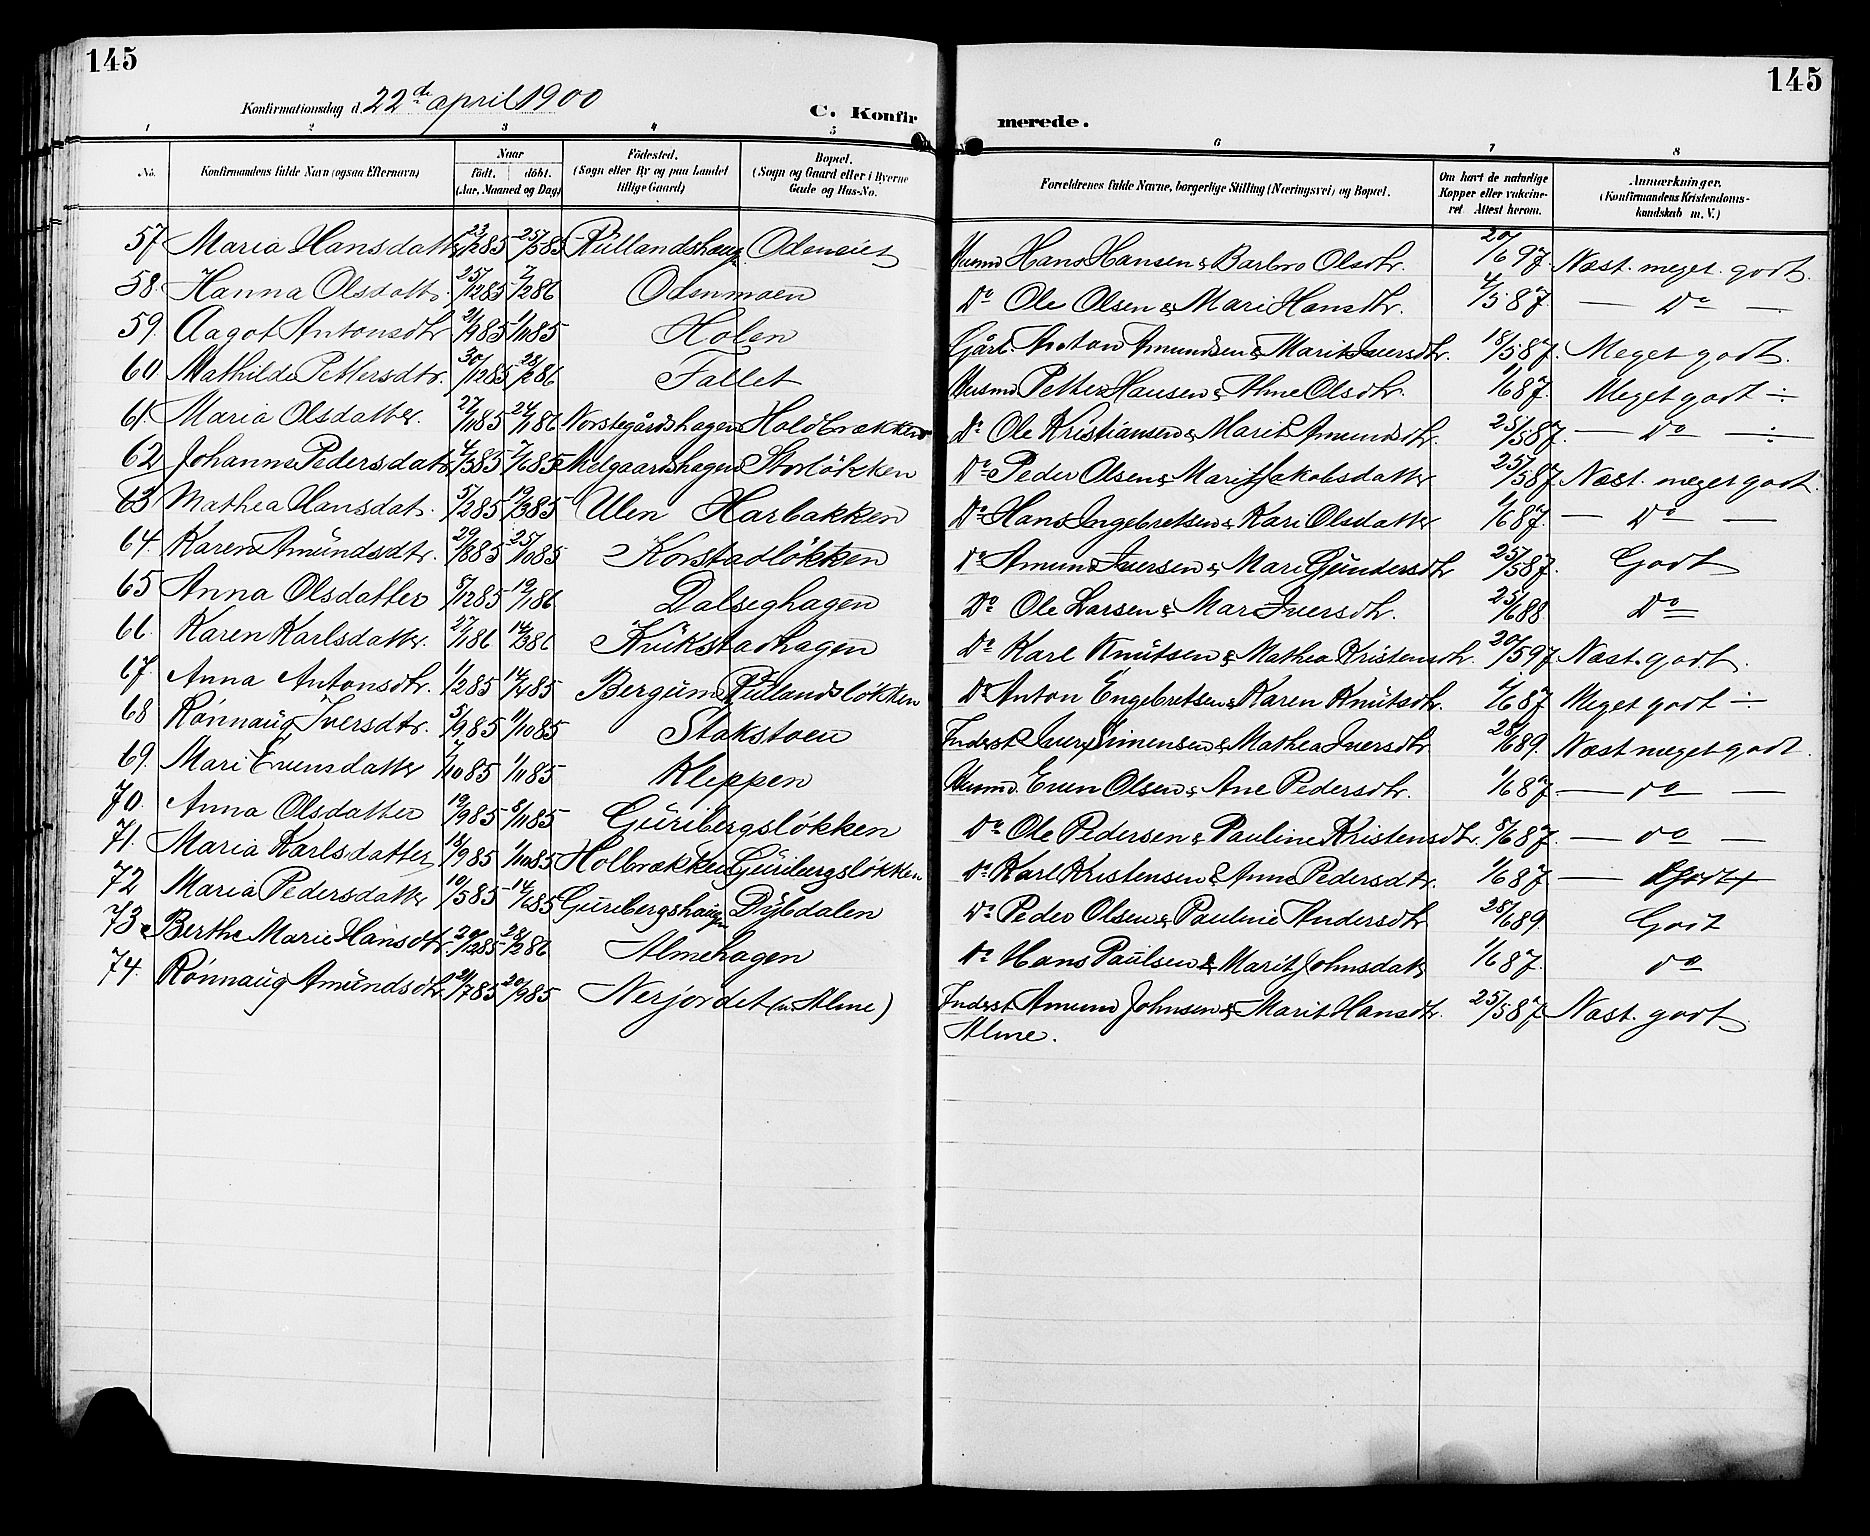 145
145
Konfirmationsdag d. 22de april 1900
C. Konfirmerede.
1 2 3 4 5 6 7 8
No. Konfirmandens fulde Navn (ogsaa Efternavn) Naar födt. döbt. (Aar, Maaned og Dag) Födested. (Sogn eller By og paa Landet tillige Gaard) Bopæl. (Sogn og Gaard eller i Byerne Gade og Hus-No. Forældrenes fulde Navne, borgerlige Stilling (Næringsvei) og Bopæl. Om havt de naturlige Kopper eller vakcineret Attest herom. Anmærkninger. (Konfirmandens Kristendomskundskab m. V.)
57 Maria Hansdatter 23/1285 25/385 Rullandshaug Odeneiet Husmd Hans Hansen & Barbro Olsdtr. 20/697 Næst. meget godt.
58. Hanna Olsdatt. 25/1285 7/286 Odenmoen Do Ole Olsen & Mari Hansdtr. 4/587 — Do —
59. Aagot Antonsdtr 21/985 1/1185 Holen Gårb. Anton Amundsen & Marit Iversdtr. 18/587. Meget godt.
60. Mathilde Pettersdtr. 30/1285 28/286 Fallet Husmd Petter Hansen & Alme Olsdtr. 1/687. Meget godt ÷
61. Maria Olsdatter. 27/1185 24/186 Norstegårdshagen Holdbrækken Do Ole Kristiansen & Marit Amundsdtr. 25/587. — Do — ÷
62 Johanne Pedersdatr 4/385 7/685 Melgaardshagen Storlökken Do Peder Olsen & Marit Jakobsdatter 25/587 Næst. meget godt.
63 Mathea Hansdat. 5/285 19/385 Ulen Harbakken Do Hans Ingebretsen & Kari Olsdatter 1/687. — Do —
64. Karen Amundsdtr. 29/885 25/1085 Korstadlökken Do Amund Iversen & Mari Gundersdtr 25/587. Godt
65 Anna Olsdatter 8/1285 19/186 Dalseghagen Do Ole Larsen & Mari Iversdtr. 25/688. Do
66. Karen Karlsdatter. 27/186 14/386 Krukstadhagen Do Karl Knutsen & Mathea Kristensdtr. 20/597 Næst. godt.
67. Anna Antonsdtr. 1/285 14/485 Bergum Rullandslökken Do Anton Engebretsen & Karen Knutsdtr. 1/687 Meget godt ÷
68 Rönnaug Iversdtr. 5/985 11/1085 Stakstoen Inderst Iver Simensen & Mathea Iversdtr 28/689. Næst meget godt.
69. Mari Evensdatter 7/1085 1/1185 Kleppen Husmd. Even Olsen & Ane Pedersdtr. 1/687. — do —
70. Anna Olsdatter 19/985 8/1185 Guribergslökken Do Ole Pedersen & Pauline Kristensdtr. 8/687. — do —
71. Maria Karlsdatter 18/985 1/1185 Holbrækken Guribergslökken Do Karl Kristensen & Anne Pedersdtr. 1/687. — Godt
72 Maria Pedersdatter 10/585 14/685 Guribergshaugen Dybdalen Do Peder Olsen & Pauline Andersdtr 28/689. Godt
73. Berthe Marie Hansdtr. 20/1285 28/286 Almehagen Do Hans Paulsen & Marit Johnsdatr 1/687. do
74. Rönnaug Amundsdtr 21/785 20/985 Nerjordet (u. Alme) Inderst Amund Johnsen & Marit Hansdtr. 25/587 Næst. godt
Alme.